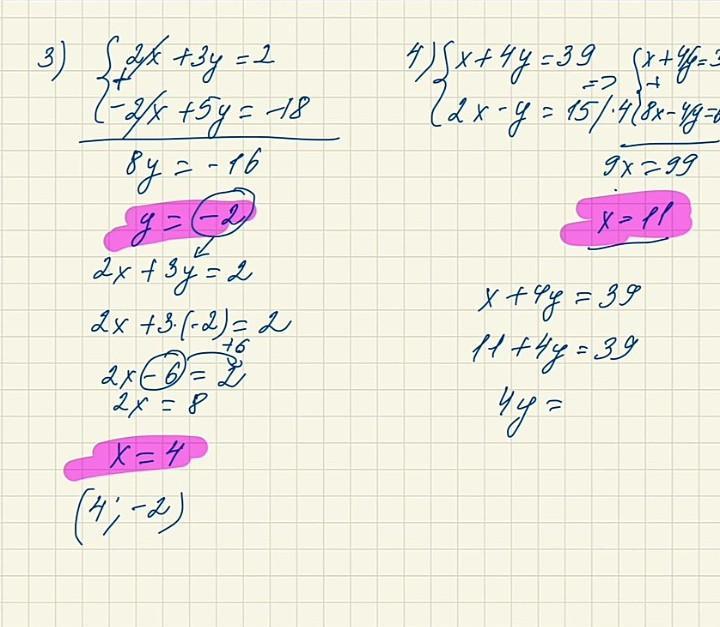 3) { 2x + 3y = 2
+
-2x + 5y = -18
8y = -16
y = -2
2x + 3y = 2
2x + 3·(-2) = 2
+6
2x - 6 = 2
2x = 8
x = 4
(4; -2)
4) { x + 4y = 39 => { x + 4y = 3
+
2x - y = 15 / ·4 8x - 4y = 6
9x = 99
x = 11
x + 4y = 39
11 + 4y = 39
4y =